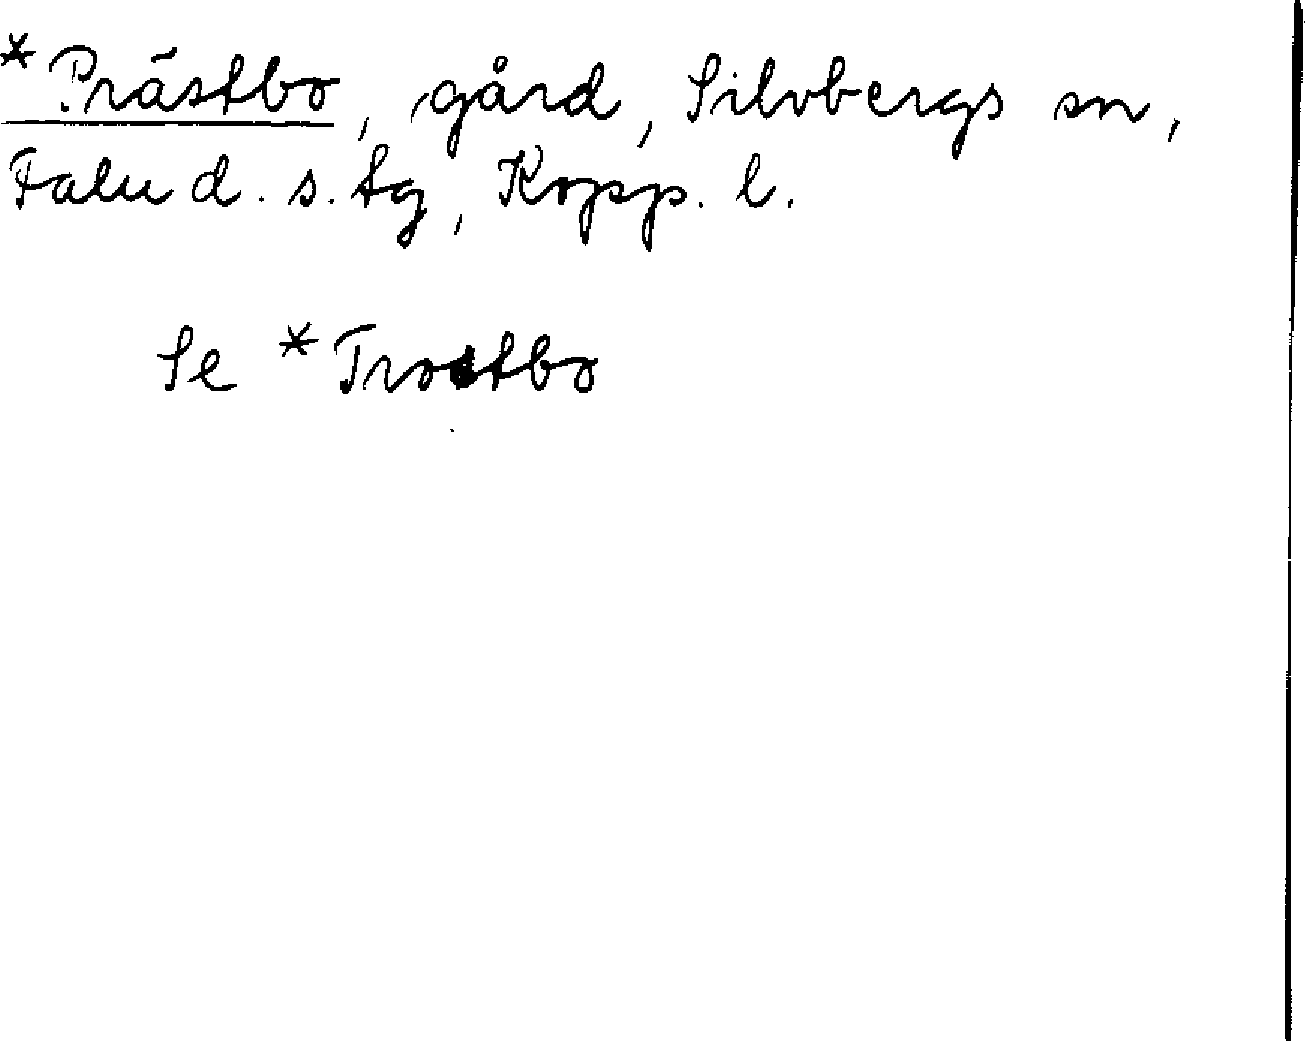 *Prästbo, gård, Silvbergs sn,
Falu d. s. tg, Kopp. l.
Se *Trostbo